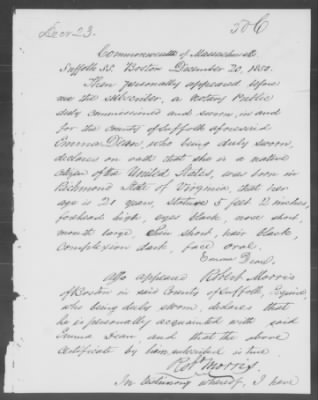 Decr 23.
50 C
Commonwealth of Massachusetts
Suffolk SS. Boston December 20, 1850.
Then personally appeared before
me the subscriber, a Notary Public
duly commissioned and sworn, in and
for the county of Suffolk aforesaid
Emma Dean, who being duly sworn,
declares on oath that she is a native
citizen of the United States, was born in
Richmond State of Virginia, that her
age is 21 years, stature 5 feet 2 inches,
forehead high, eyes black, nose short,
mouth large, chin short, hair black,
complexion dark, face oval.
Emma Dean.
Also appeared Robert Morris
of Boston in said County of Suffolk, Esquire,
who being duly sworn, declares that
he is personally acquainted with said
Emma Dean and that the above
certificate by her subscribed is true.
Robt Morris.
In testimony whereof, I have